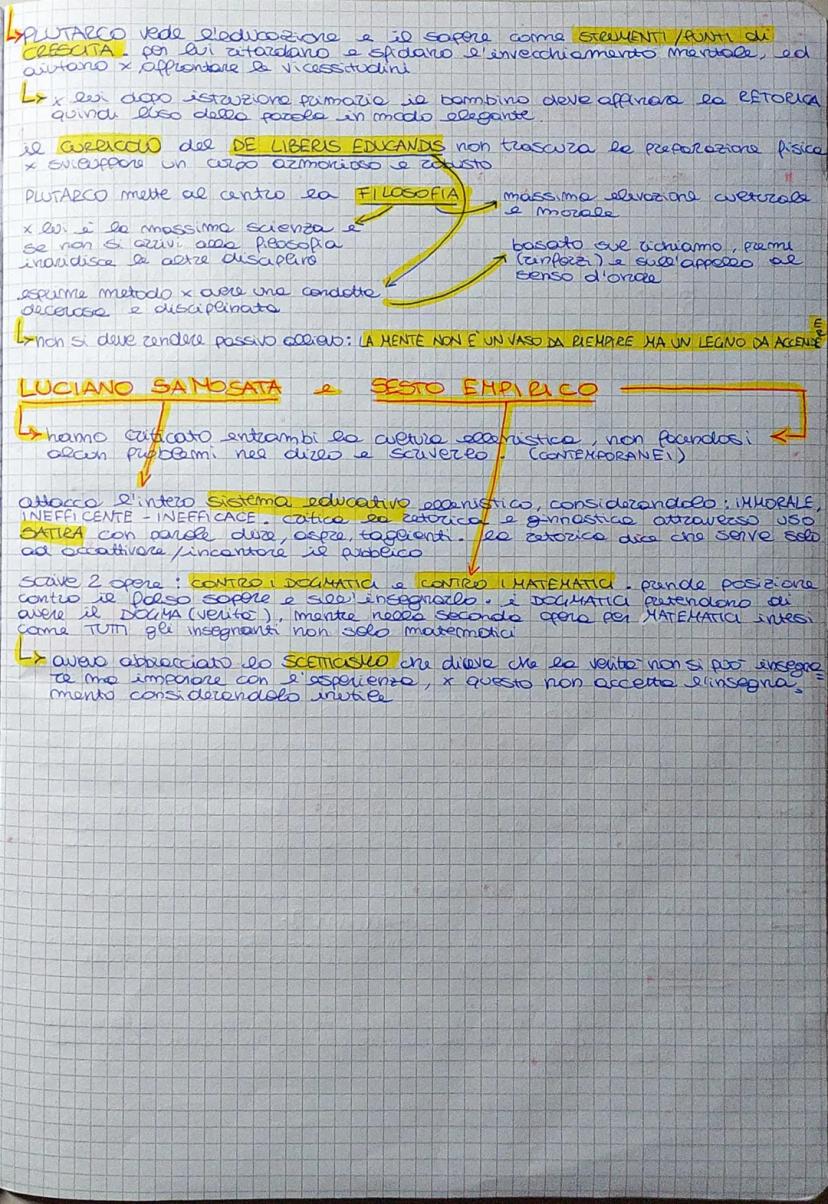 PLUTARCO vede l'educazione e il sapere come STRUMENTI/PUNTI di
CRESCITA. per lui ritardano e sfidano l'invecchiamento mentale, ed
aiutano x affrontare le vicessitudini
x lui dopo istruzione primaria il bambino deve affinare la RETORICA
quindi l'uso della parola in modo elegante.
il CURRICOLO del DE LIBERIS EDUCANDIS non trascura la preparazione fisica
x sviluppare un corpo armonioso e robusto
PLUTARCO mette al centro la FILOSOFIA
massima elevazione culturale
e morale
x lui è la massima scienza e
se non si arrivi alla filosofia
inaridisce le altre discipline
basato sul richiamo, premi
(rinforzi) e sull'appello al
senso d'onore
esprime metodo x avere una condotta
decorosa e disciplinata
non si deve rendere passivo allievo: LA MENTE NON È UN VASO DA RIEMPIRE MA UN LEGNO DA ACCENDERE
LUCIANO SAMOSATA e SESTO EMPIRICO
hanno criticato entrambi la cultura ellenistica, non facendosi
alcun problemi nel dirlo e scriverlo. (CONTEMPORANEI)
attacca l'intero sistema educativo ellenistico, considerandolo: IMMORALE,
INEFFICENTE - INEFFICACE. critica la retorica e ginnastica attraverso uso
SATIRA con parole dure, aspre, taglienti. la retorica dice che serve solo
ad accattivare/incantare il pubblico
scrive 2 opere: CONTRO I DOGMATICI e CONTRO I MATEMATICI. prende posizione
contro il falso sapere e sull'insegnarlo. i DOGMATICI pretendono di
avere il DOGMA (verità), mentre nella seconda opera per MATEMATICI intesi
come TUTTI gli insegnanti non solo matematici
aveva abbracciato lo SCETTICISMO che diceva che la verità non si può insegna=
re ma imparare con l'esperienza, x questo non accetta l'insegna=
mento considerandolo inutile